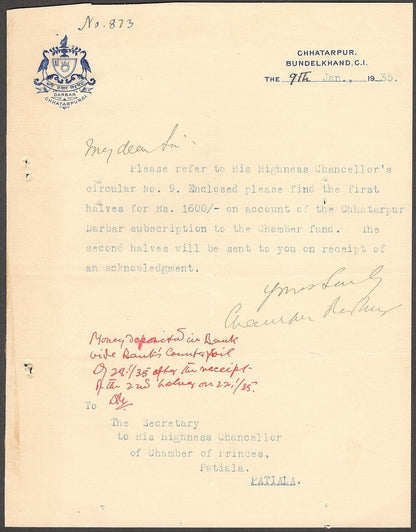 No. 873
DARBAR
CHHATARPUR
CHHATARPUR,
BUNDELKHAND, C.I.
THE 9th Jan., 1935.
My dear Sir,
Please refer to His Highness Chancellor's
circular no. 9. Enclosed please find the first
halves for Rs. 1600/- on account of the Chhatarpur
Darbar subscription to the Chamber fund. The
second halves will be sent to you on receipt of
an acknowledgment.
Yours
Money deposited in Bank
vide Bank's Counterfoil
after the receipt
of the 2nd halves on 22.1/35.
To
The Secretary
to His Highness Chancellor
of Chamber of Princes,
Patiala.
PATIALA.